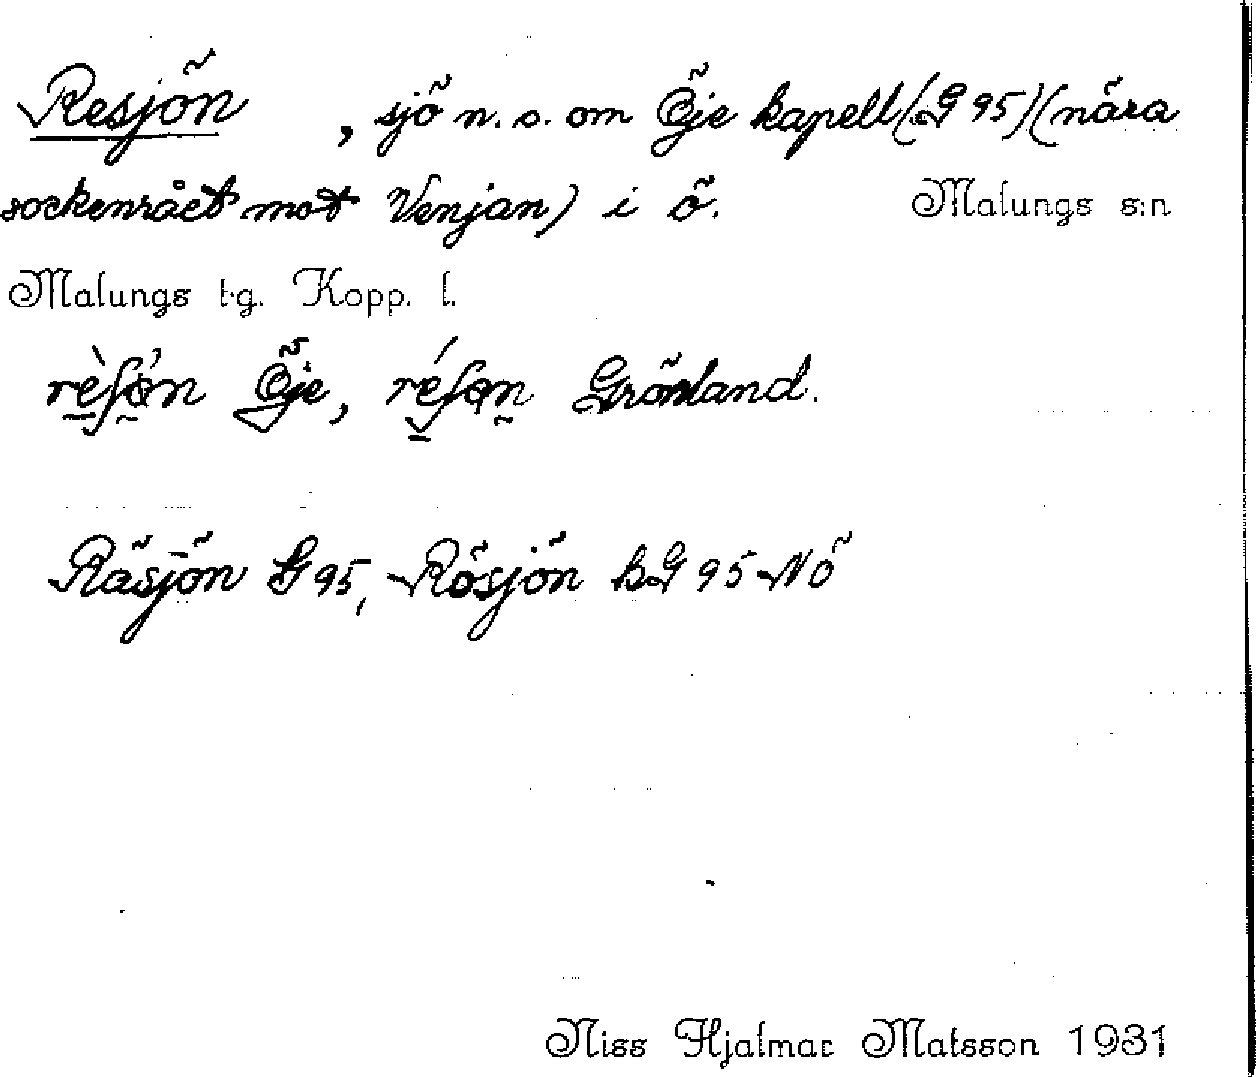 Resjön , sjö n. o. om Öje kapell (G 95) (nära
sockenrået mot Venjan) i ö. Malungs s:n
Malungs tg. Kopp. l.
Öje, Grönland.
Räsjön G 95, Rösjön kG 95 NÖ
Niss Hjalmar Matsson 1931